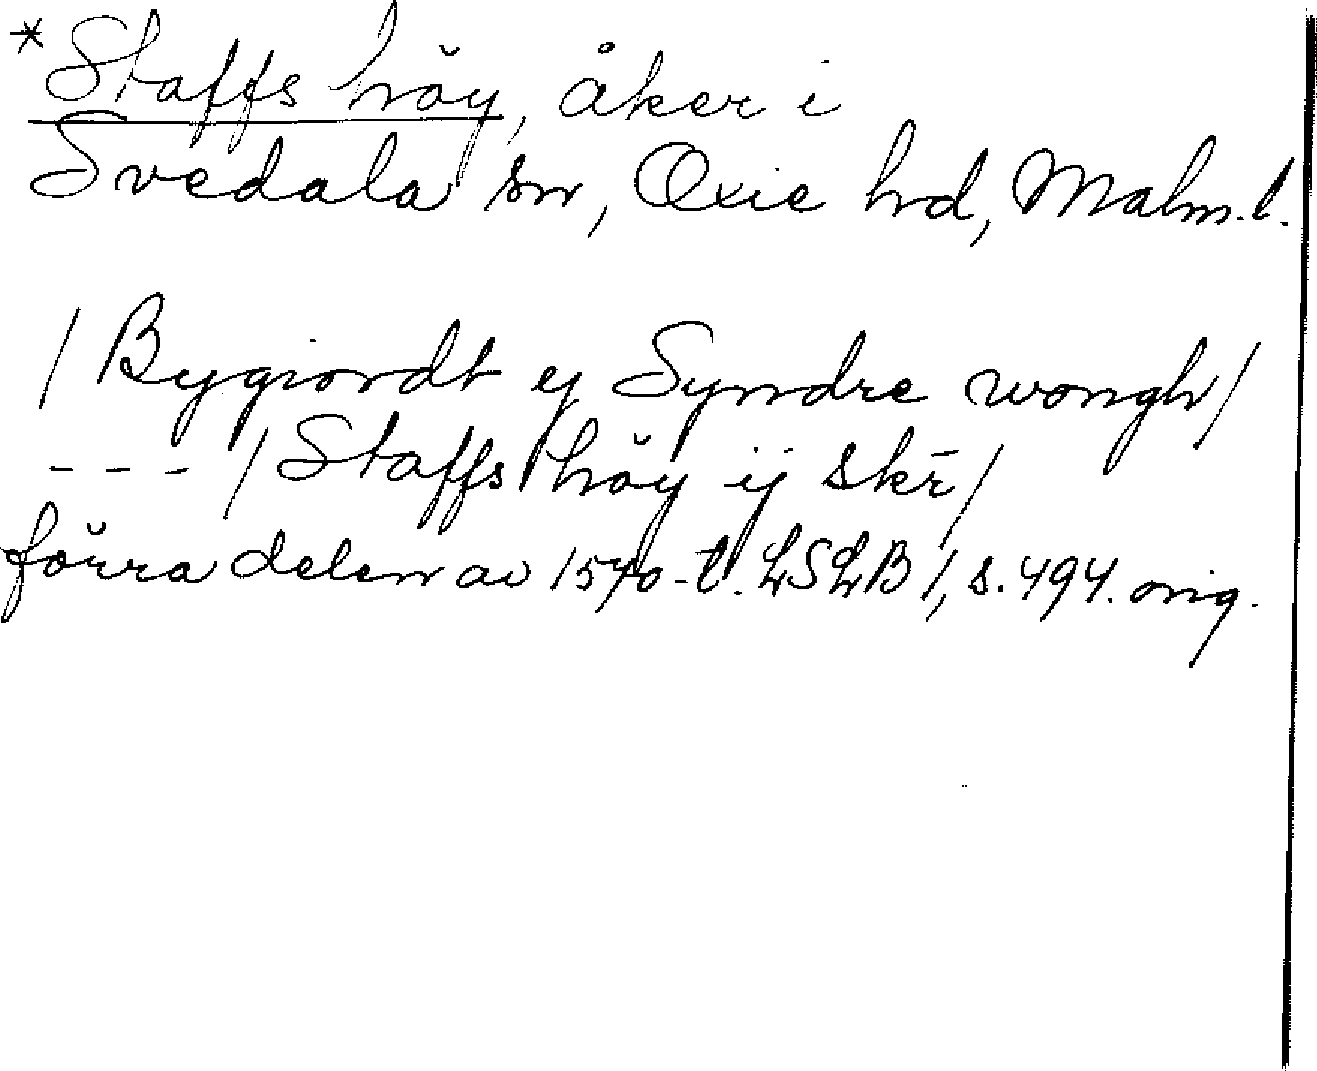 *Staffs höy, åker i
Svedala sn, Oxie hd, Malm.l.
/Bygiordt ej Syndre wongh/
--- /Staffs höy ij skr̄/
förra delen av 1570-t. LSLB 1, s. 494. orig.